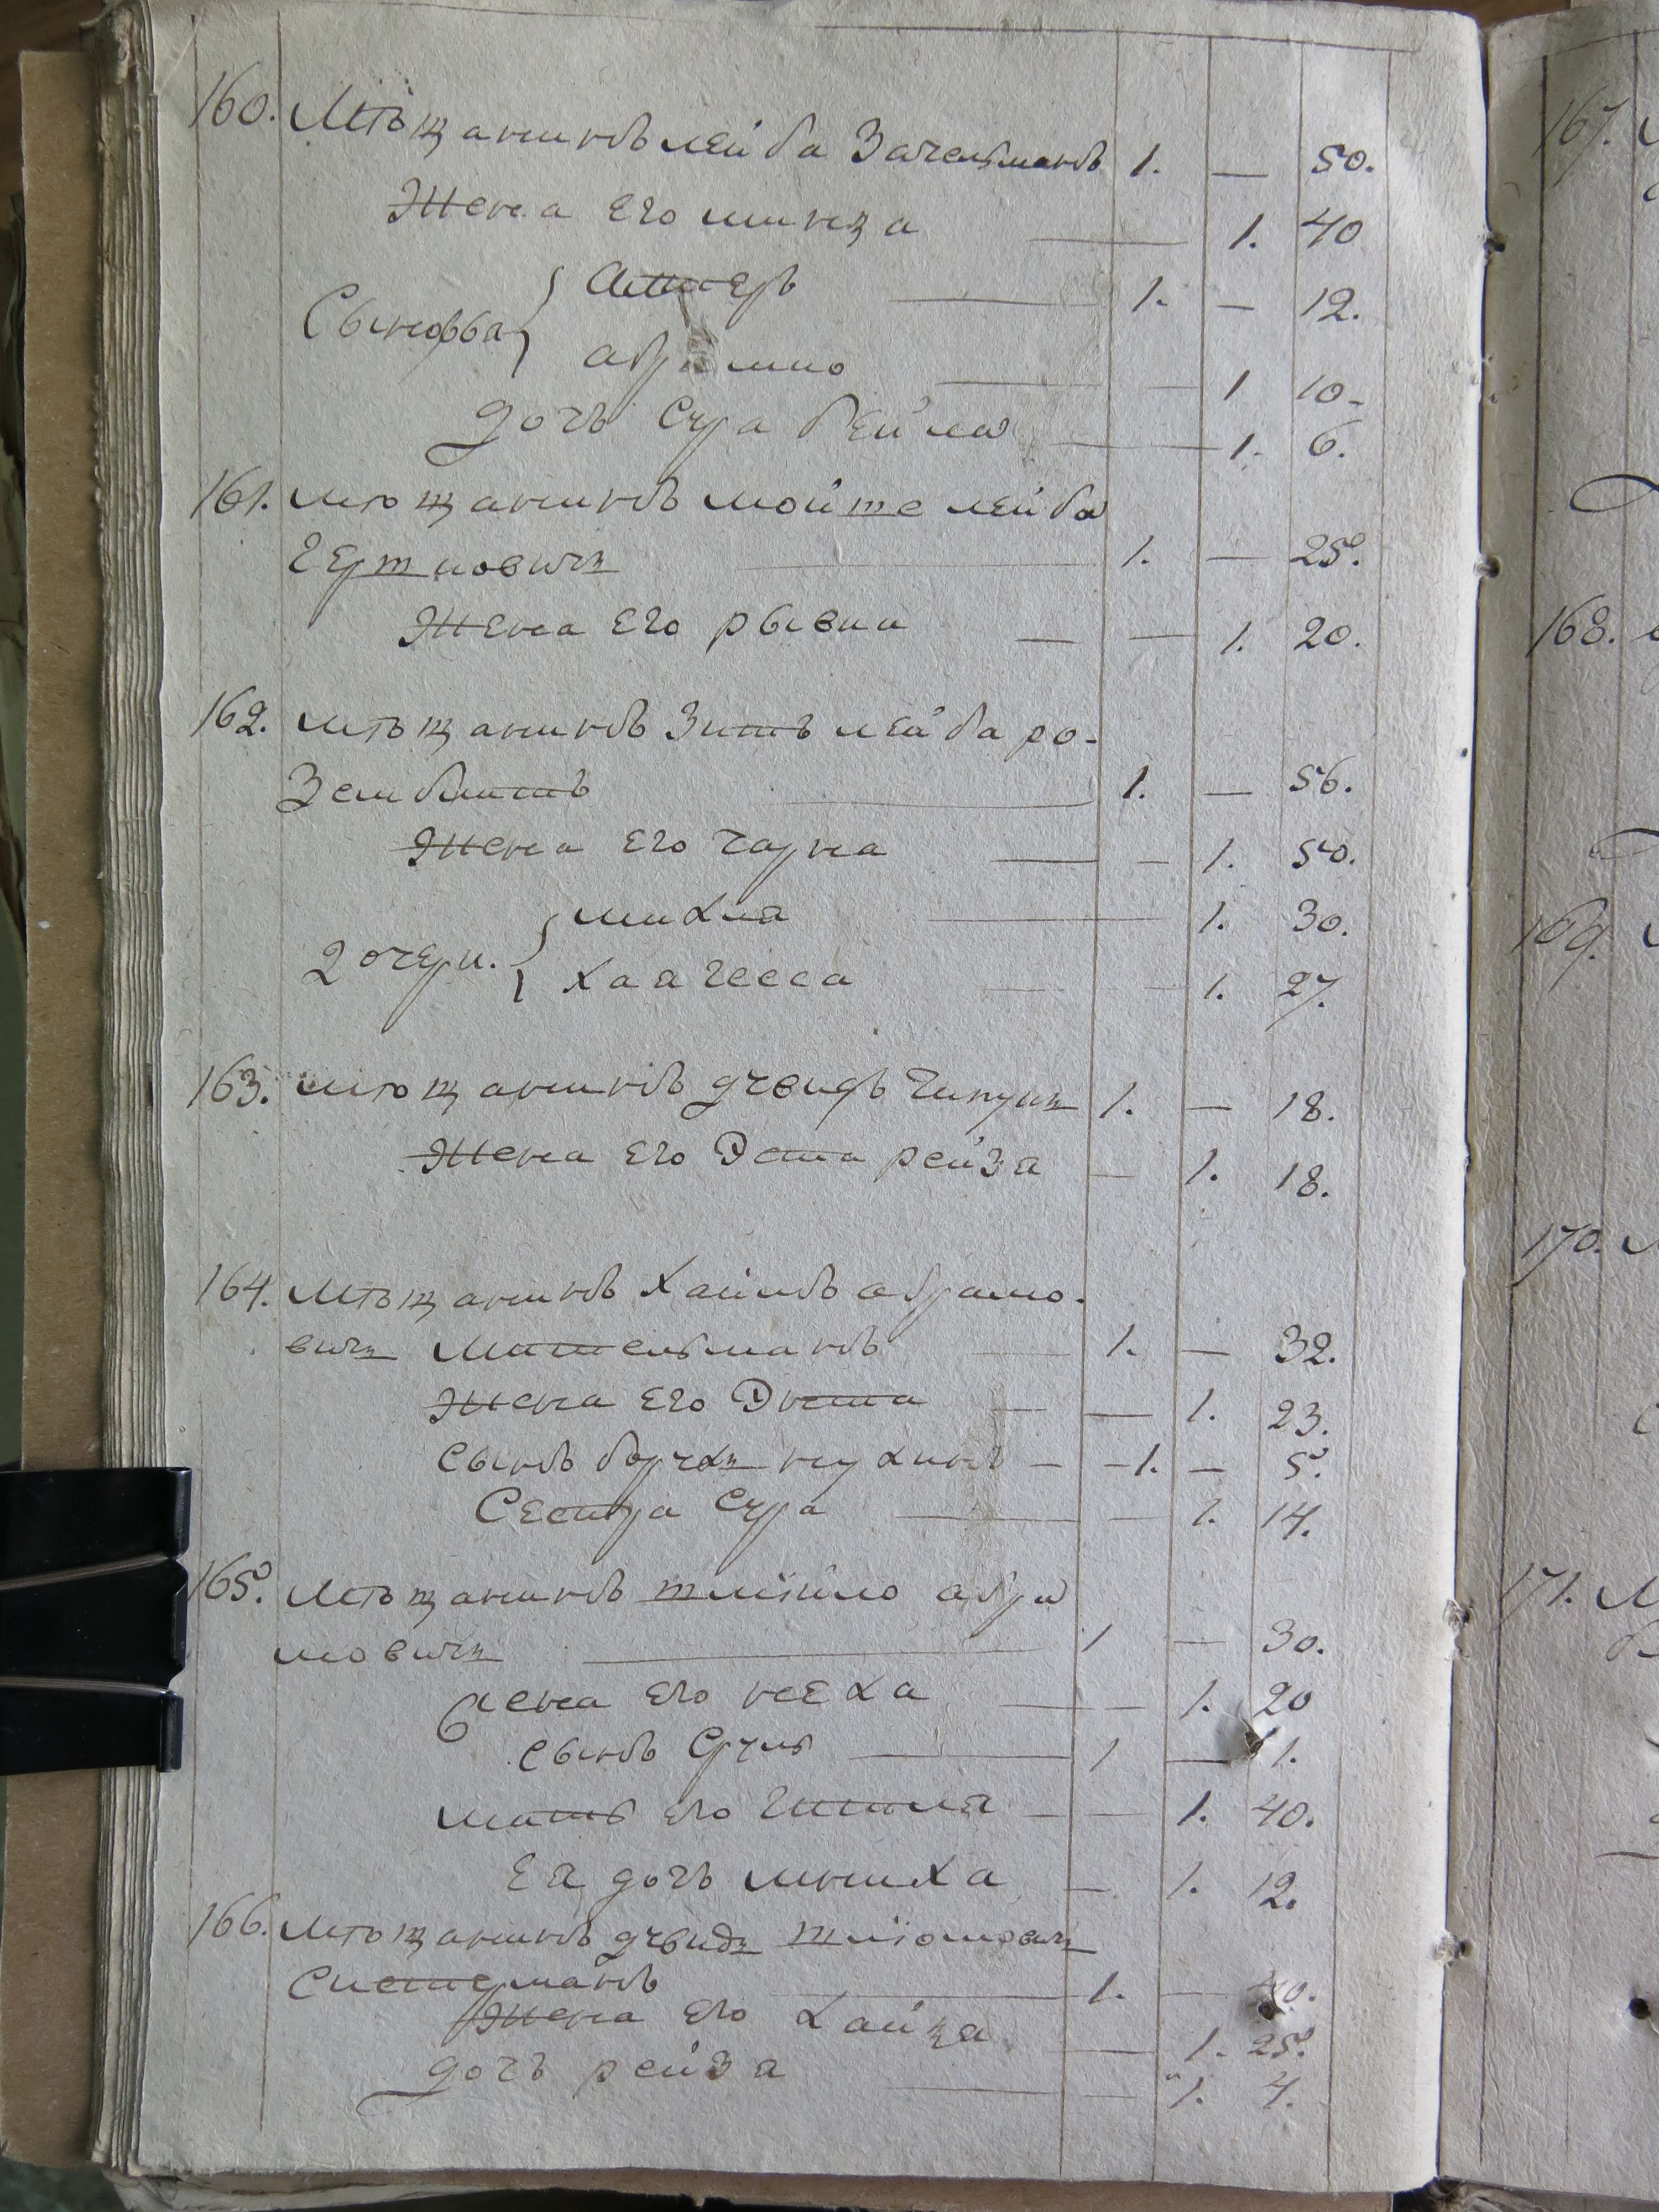 160. Мѣщанинъ лейба Зачельманъ 1. — 50.
Жена Его минца — 1. 40
Сыновья { Аншеръ — 1. — 12.
абрамко — 1 10.
дочь Сура бейла — 1. 6.
161. мѣщанинъ мойше лейба
Гершковичъ 1. — 25.
Жена Его рывка — — 1. 20.
162. мѣщанинъ Зитъ лейба ро-
Зенблитъ 1. — 56.
Жена Его чарна — — 1. 50.
дочери. { михля — 1. 30.
хая гесса — — 1. 27.
163. мѣщанинъ дувидъ 1. — 18.
Жена Его Эста рейзя — 1. 18.
164. Мѣщанинъ Хаимъ абрамо-
вичъ Мительманъ — 1. — 32.
Жена Его Энта — — 1. 23.
Сынъ борухъ нухимъ — - 1. — 5.
Сестра Сура — — 1. 14.
165. Мѣщанинъ шліомо абра
мовичъ — 1 — 30.
жена Его неха — — 1. 20
Сынъ Сруль — 1 — 1.
мать Его Гитля — — 1. 40.
Ея дочь минха — 1. 12.
166. Мѣщанинъ дувидъ шліомовичъ
Систерманъ — 1. — 40.
Жена Его Хайця — 1. 25.
дочь рейзя — — 1. 4.
167.
168.
169.
170.
171.